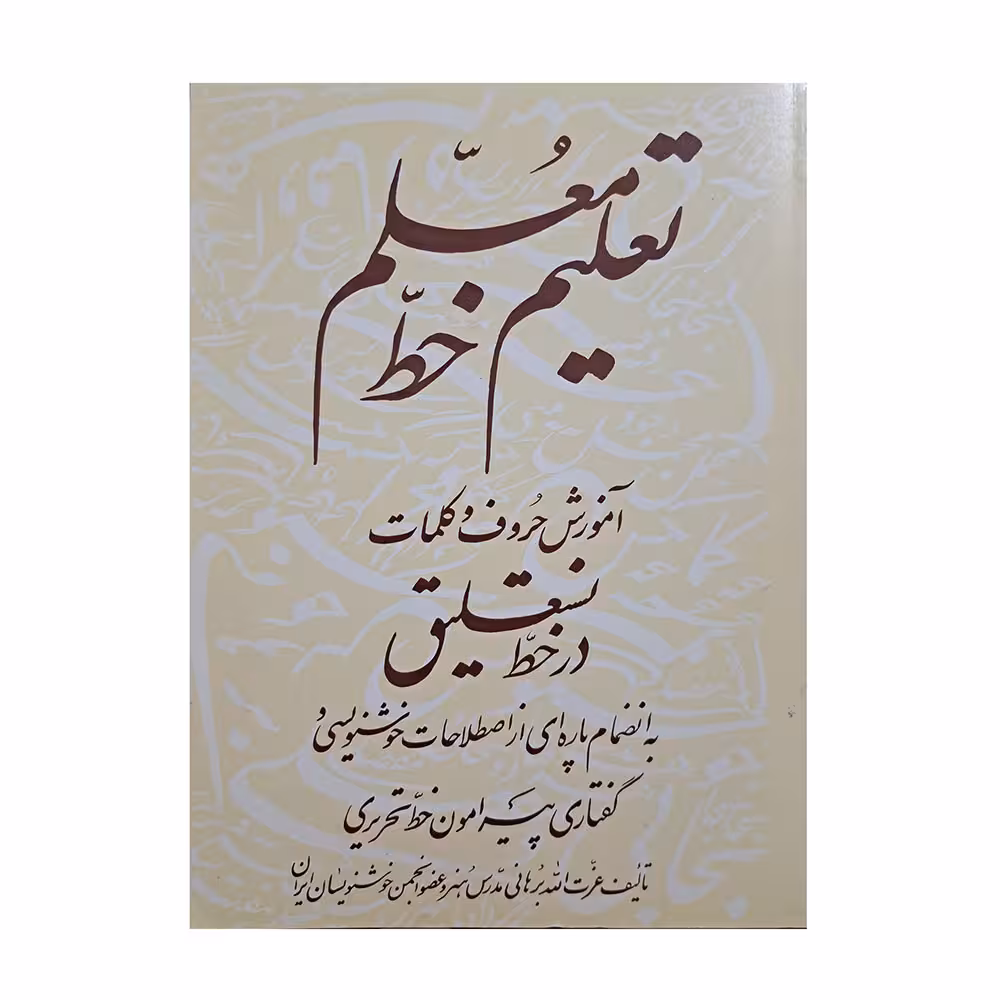 تعلیم معلّم
خطّ
آموزش حُروف و کلمات
در خطّ نستعلیق
به انضمام پاره‌ای از اصطلاحات خوشنویسی و
گفتاری پیرامون خطّ تحریری
تألیف عزّت الله بُرهانی مدّرس هُنر و عضو انجمن خوشنویسان ایران